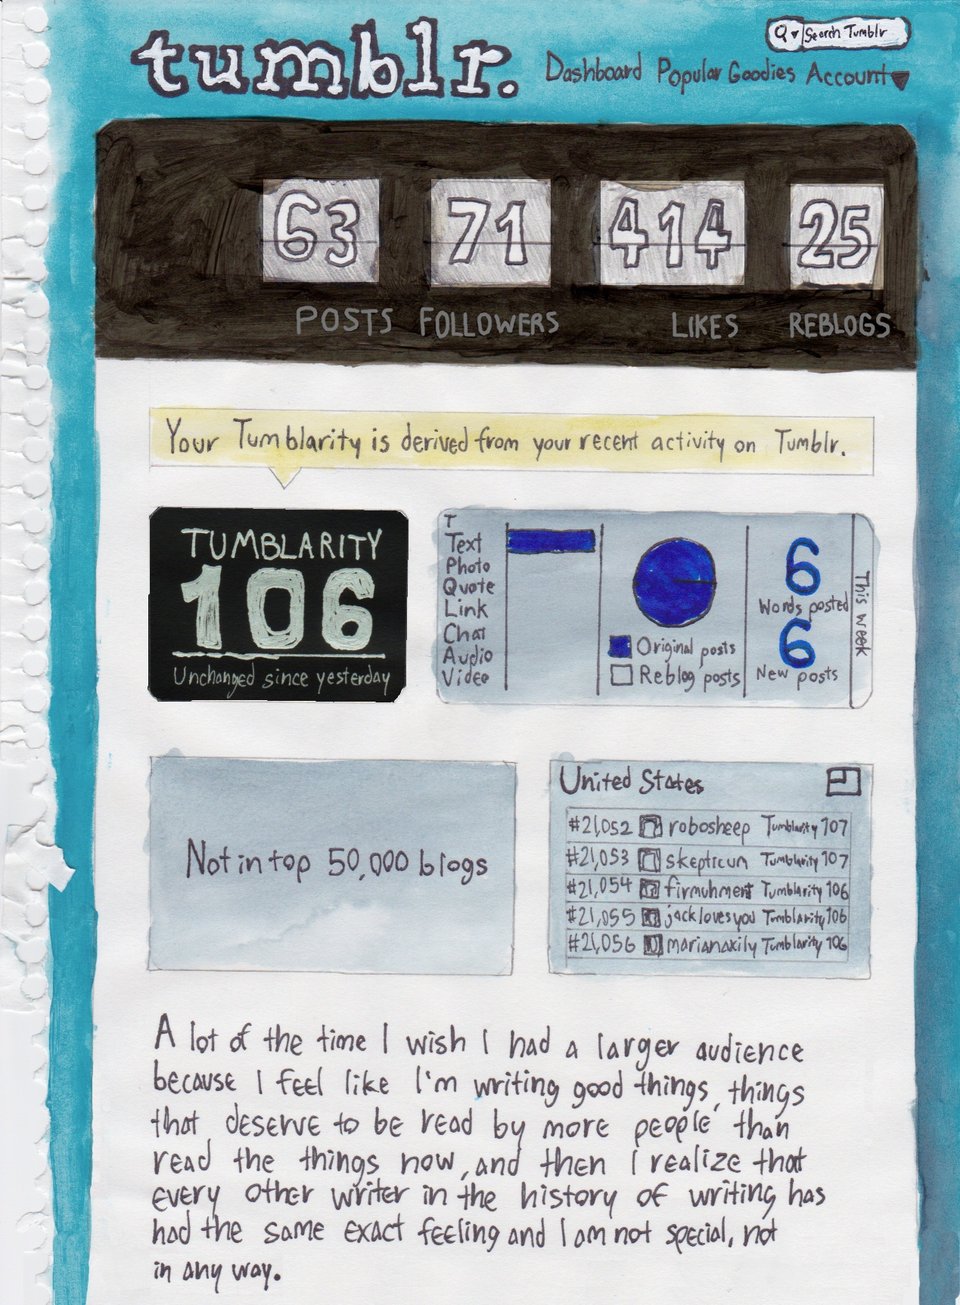 tumblr.
Search Tumblr
Dashboard Popular Goodies Account
63 71 414 25
POSTS FOLLOWERS LIKES REBLOGS
Your Tumblarity is derived from your recent activity on Tumblr.
TUMBLARITY
106
Unchanged since yesterday
T
Text
Photo
Quote
Link
Chat
Audio
Video
Original posts
Reblog posts
6
Words posted
6
New posts
This week
Not in top 50,000 blogs
United States
#21,052 robosheep Tumblarity 107
#21,053 skepticun Tumblarity 107
#21,054 firmuhment Tumblarity 106
#21,055 jacklovesyou Tumblarity 106
#21,056 marianaxily Tumblarity 106
A lot of the time I wish I had a larger audience
because I feel like I'm writing good things, things
that deserve to be read by more people than
read the things now, and then I realize that
every other writer in the history of writing has
had the same exact feeling and I am not special, not
in any way.